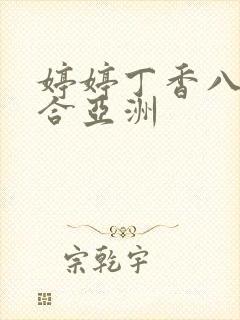 婷婷丁香八
合亞洲
宗乾宇